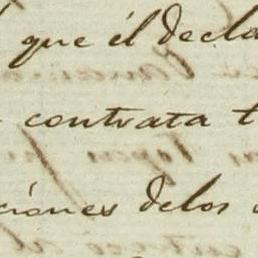 que él decla
contrata t
ciones delos